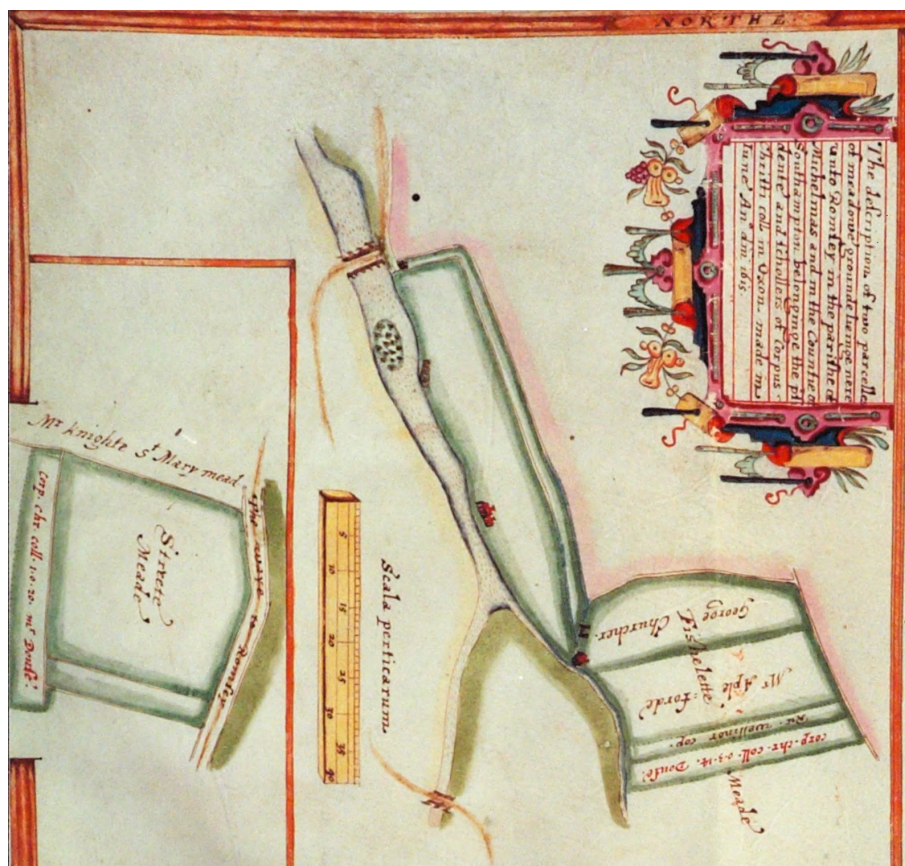 NORTHE
The description of two parcelles
of meadowe grounde lieinge nere
unto Romsey in the parishe of
Michelmas and in the Countie of
Southampton, belonginge the
dente and schollers of Corpus
christi coll. in Oxon. made in
Iune An° dm̄ 1615
Mr knighte St Mary mead
Corp. chr. coll. 1.0.20. mr Douse.
Streete
Meade
the waye to Romsey
Scala perticarum
5 10 15 20 25 30 35 40
George
Churcher.
Fishelette
Mr Aple = forde
wellinor cop.
corp. chr. coll. 0.3.14. Douse.
Meade